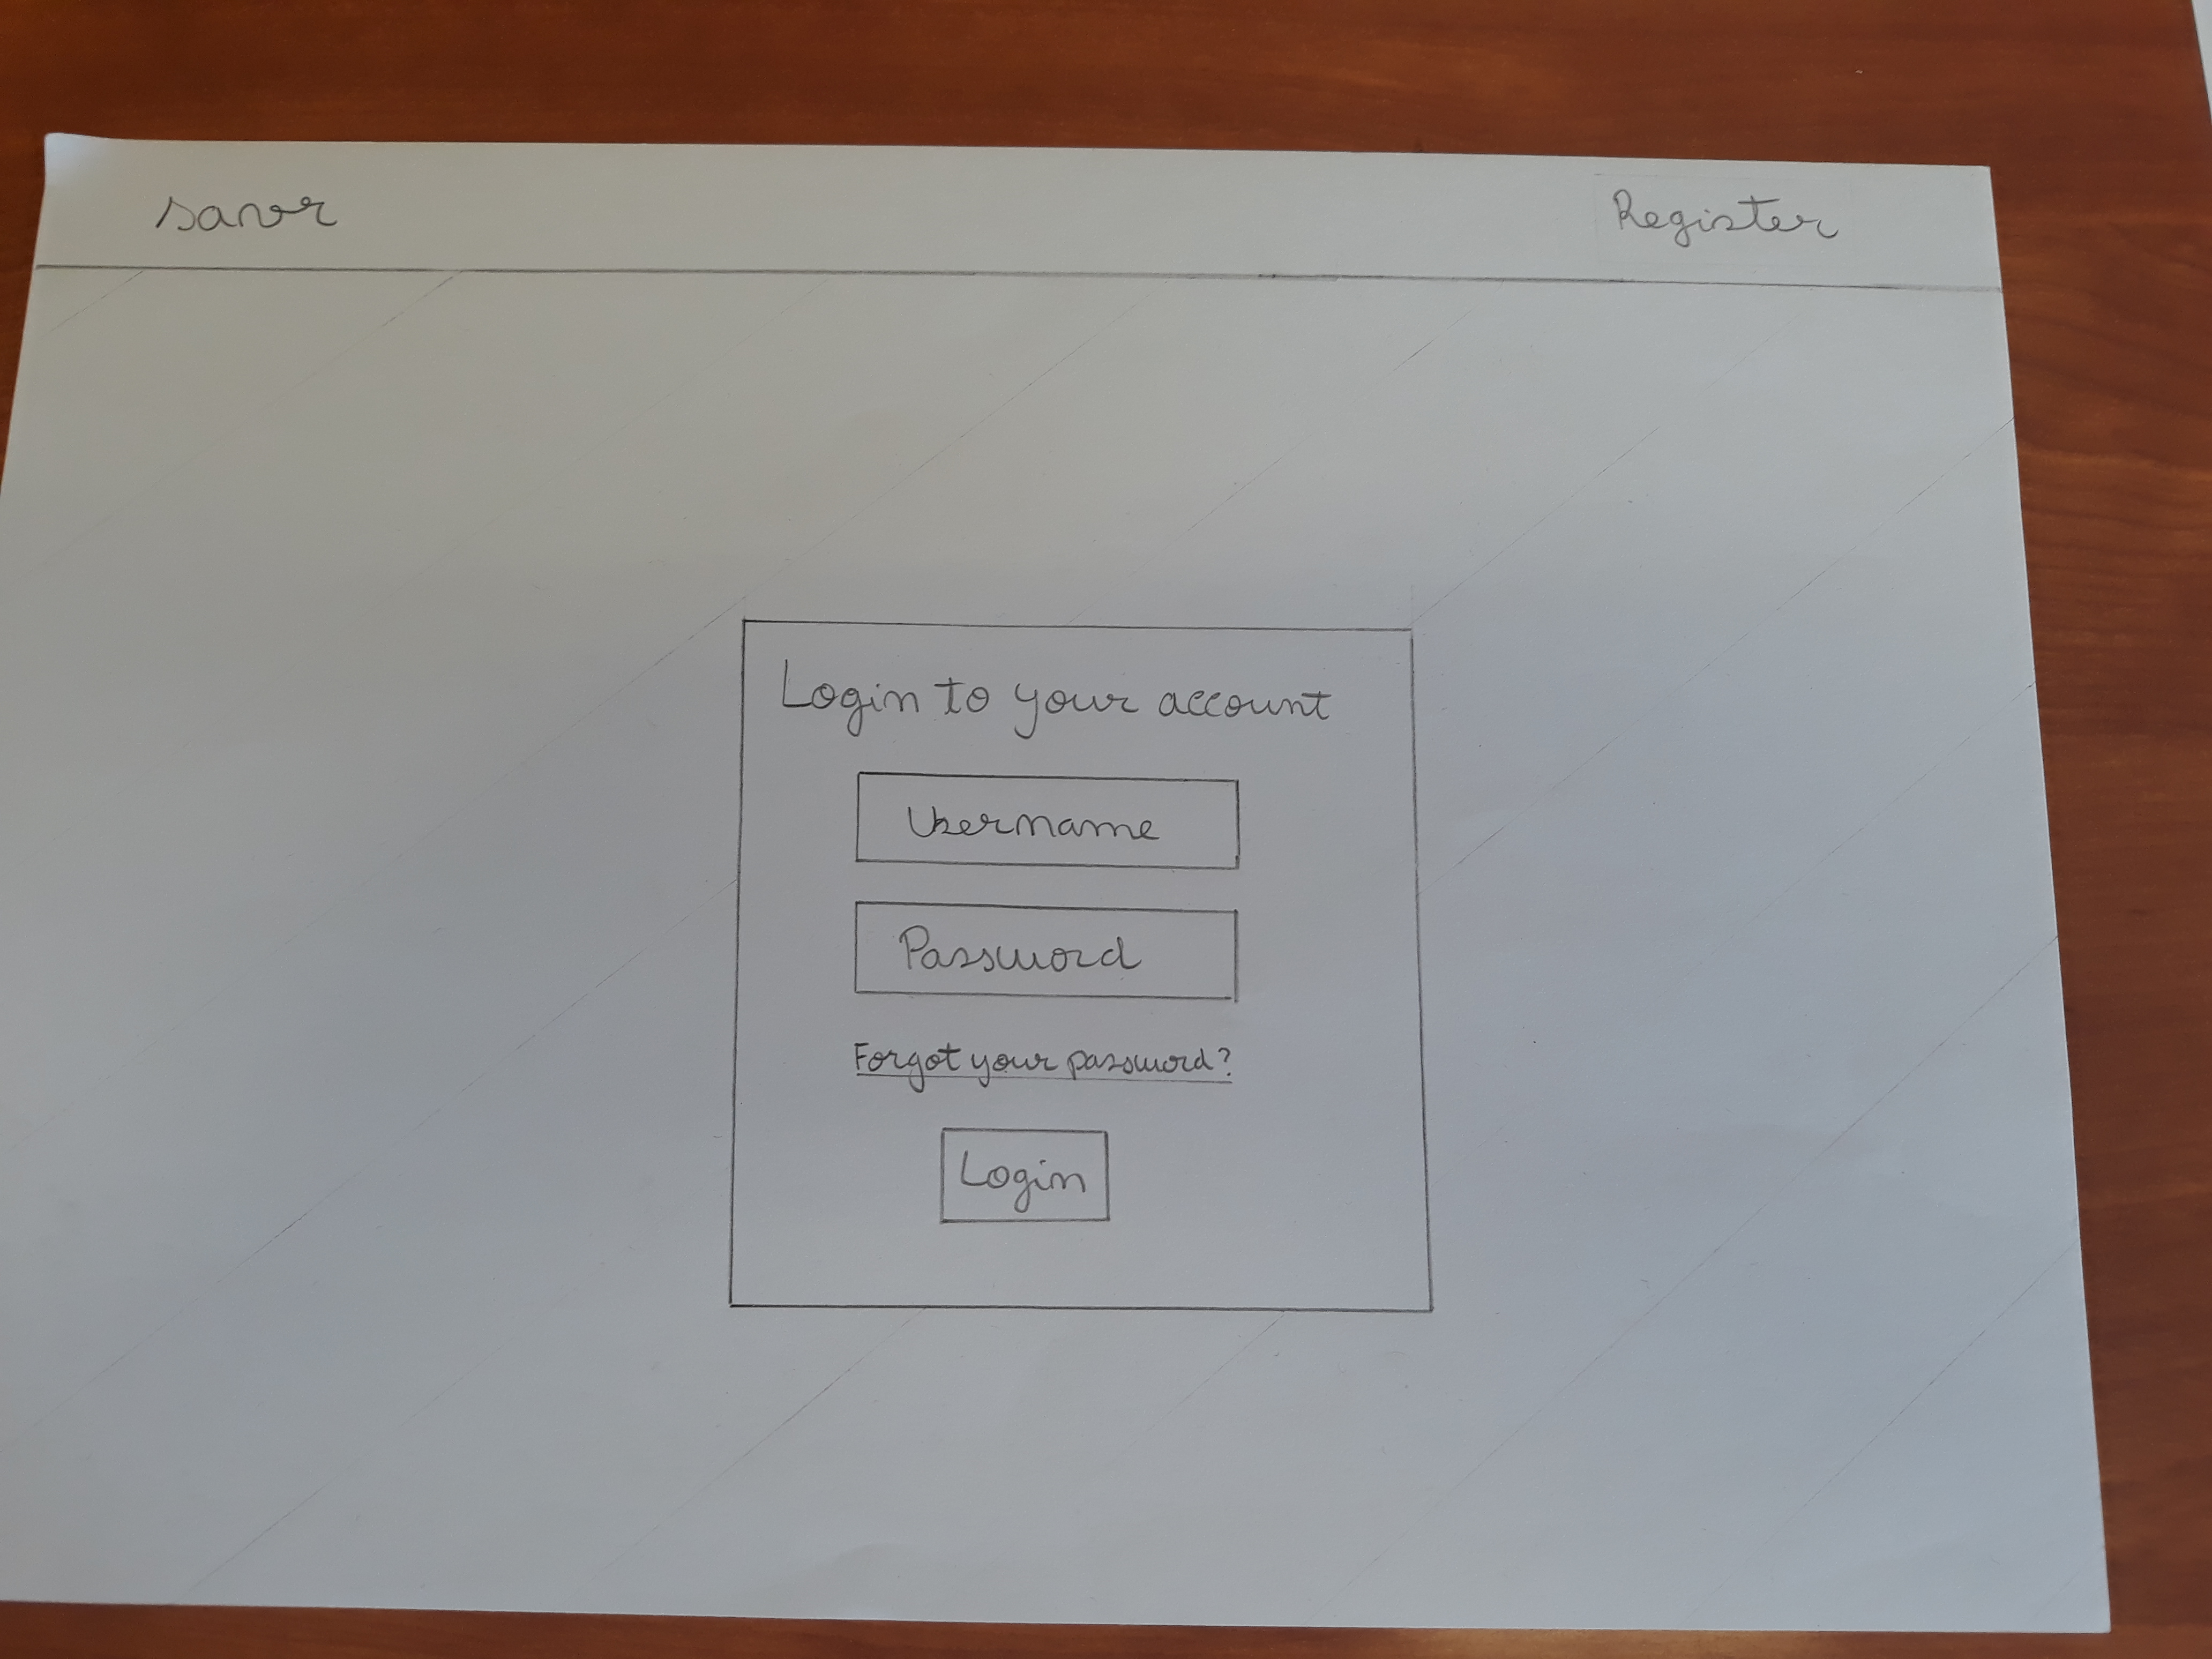 savr
Register
Login to your account
Username
Password
Forgot your password?
Login